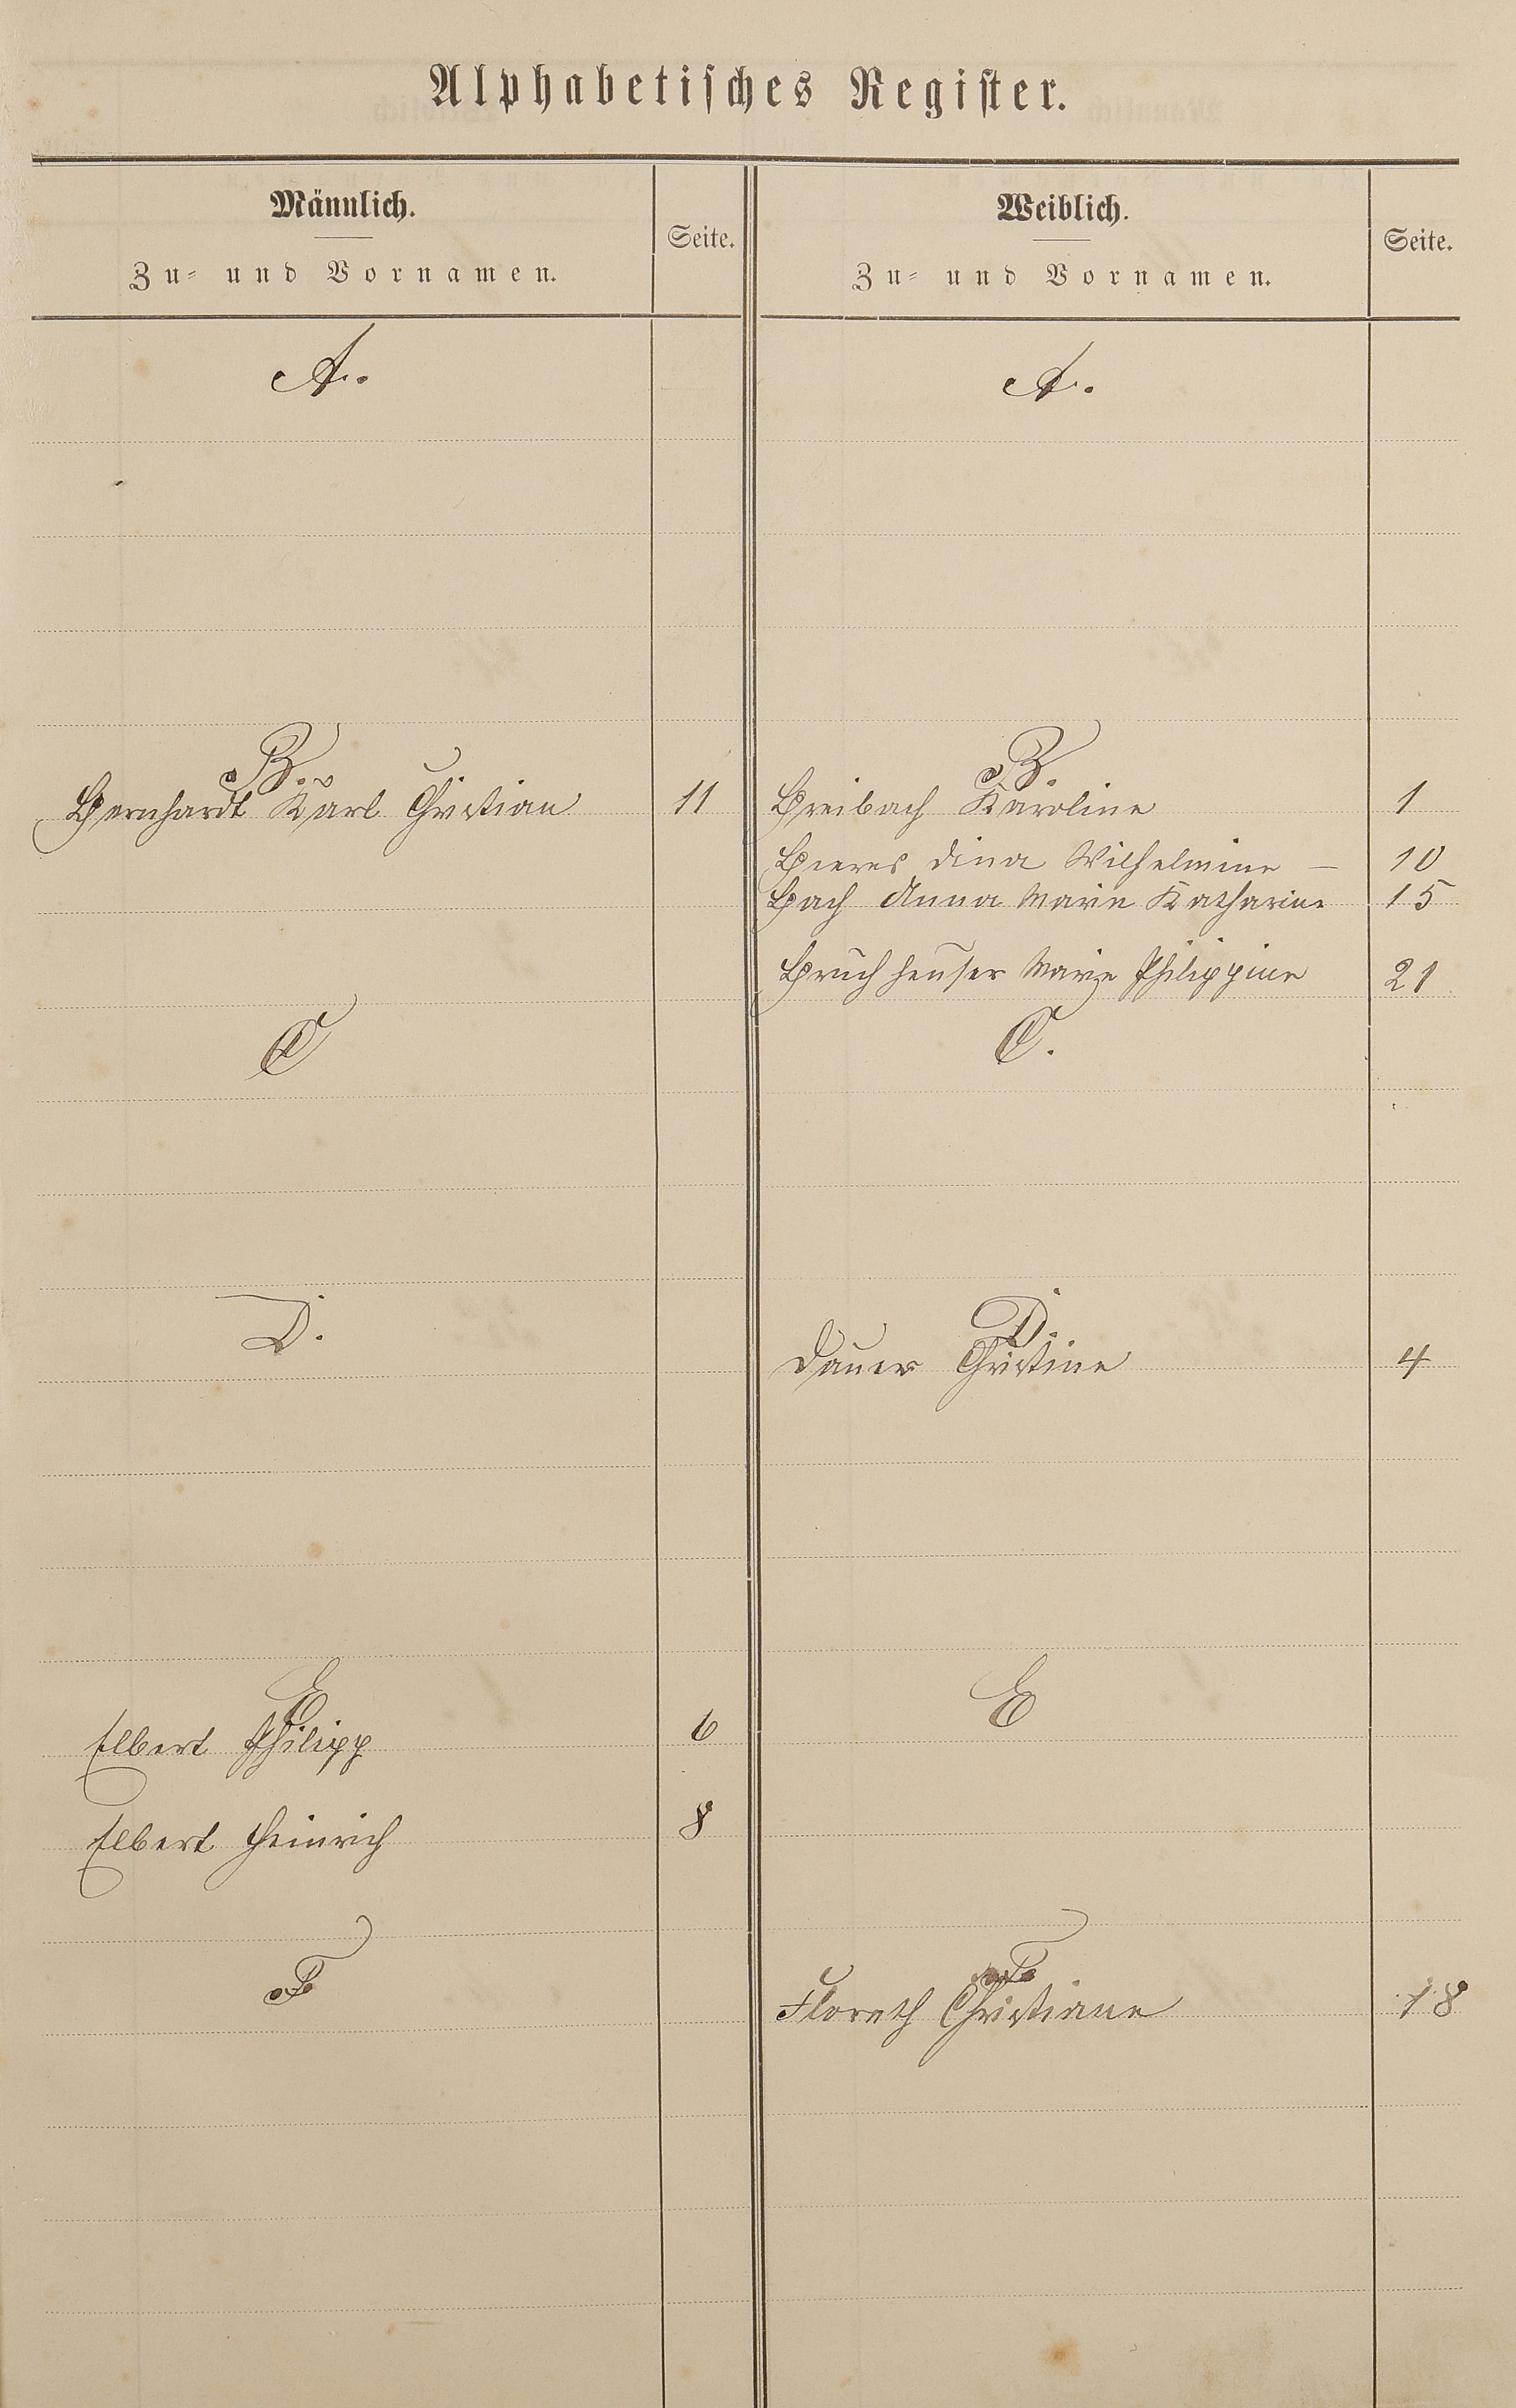 Alphabetisches Register.
Männlich.
Zu- und Vornamen.
Seite.
Weiblich.
Zu- und Vornamen.
Seite.
A.
A.
B.
B.
Bernhardt Karl Christian 11
Breibach Karoline 1
Dina Wilhelmine — 10
Bach Anna Marie Katharine 15
Bruchheuser Marie Philippine 21
C
C.
D.
D.
Dauer Christine 4
E
E
Elbert Philipp 6
Elbert Heinrich 8
F
F.
Floreth Christiane 18